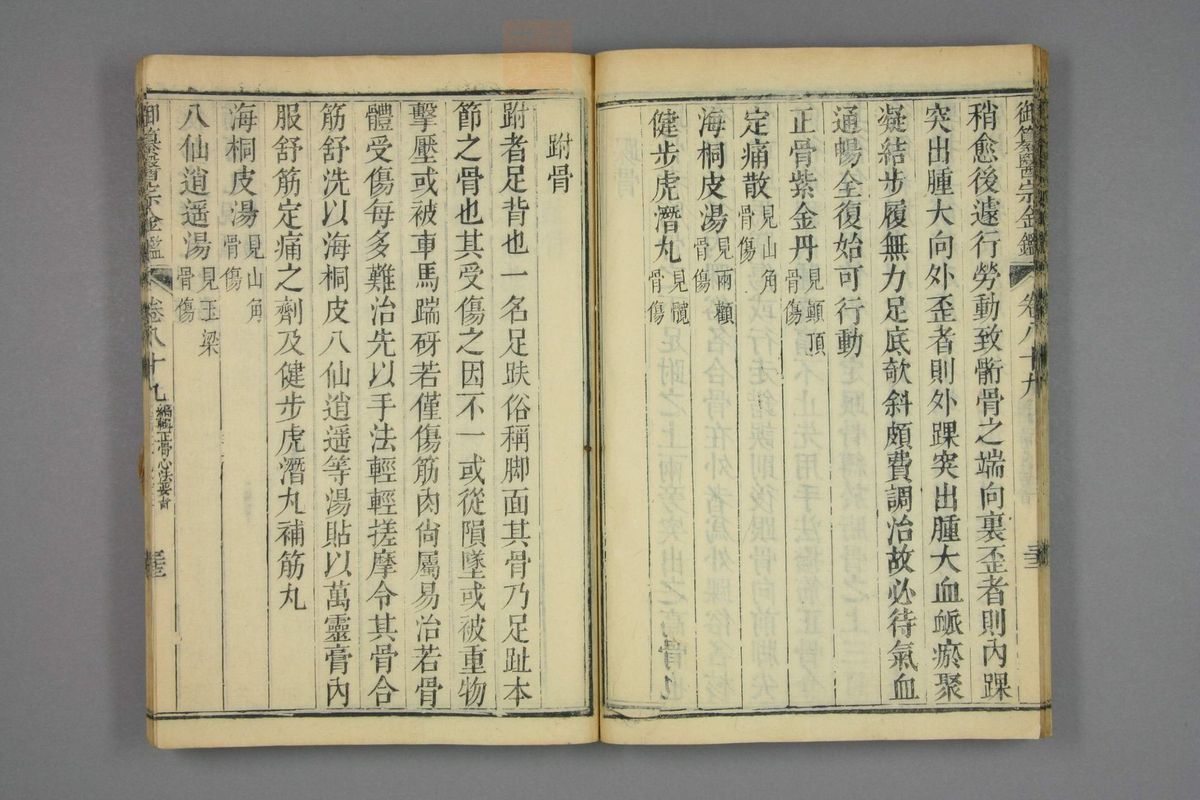 御纂醫宗金鑑 卷八十九
稍愈後遽行勞動致骱骨之端向裏歪者則內踝
突出腫大向外歪者則外踝突出腫大血衇瘀聚
凝結步履無力足底欹斜頗費調治故必待氣血
通暢全復始可行動
正骨紫金丹見顛頂骨傷
定痛散見山角骨傷
海桐皮湯見兩顴骨傷
健步虎潛丸見髖骨傷
跗骨
跗者足背也一名足趺俗稱脚面其骨乃足趾本
節之骨也其受傷之因不一或從隕墜或被重物
擊壓或被車馬踹砑若僅傷筋肉尙屬易治若骨
體受傷每多難治先以手法輕輕搓摩令其骨合
筋舒洗以海桐皮八仙逍遥等湯貼以萬靈膏內
服舒筋定痛之劑及健步虎潛丸補筋丸
海桐皮湯見山角骨傷
八仙逍遥湯見玉梁骨傷
御纂醫宗金鑑 卷八十九 編輯正骨心法要旨